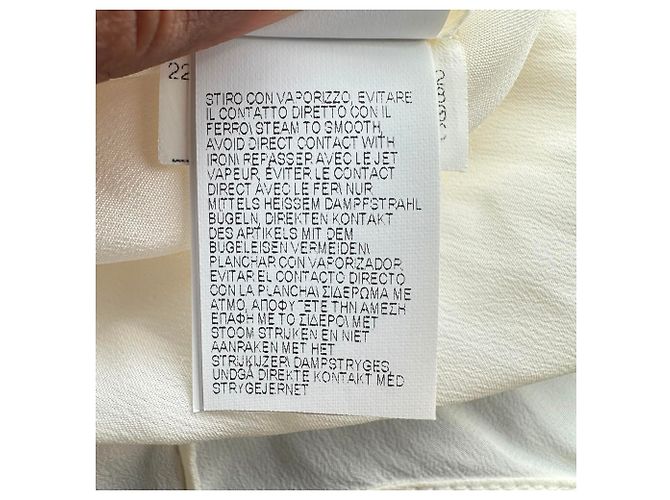 22
STIRO CON VAPORIZZO, EVITARE
IL CONTATTO DIRETTO CON IL
FERRO\ STEAM TO SMOOTH,
AVOID DIRECT CONTACT WITH
IRON\ REPASSER AVEC LE JET
VAPEUR, ÉVITER LE CONTACT
DIRECT AVEC LE FER\ NUR
MITTELS HEISSEM DAMPFSTRAHL
BÜGELN, DIREKTEN KONTAKT
DES ARTIKELS MIT DEM
BÜGELEISEN VERMEIDEN\
PLANCHAR CON VAPORIZADOR,
EVITAR EL CONTACTO DIRECTO
CON LA PLANCHA\ ΣΙΔΕΡΩΜΑ ΜΕ
ΑΤΜΟ, ΑΠΟΦΥΓΕΤΕ ΤΗΝ ΑΜΕΣΗ
ΕΠΑΦΗ ΜΕ ΤΟ ΣΙΔΕΡΟ\ MET
STOOM STRIJKEN EN NIET
AANRAKEN MET HET
STRIJKIJZER\ DAMPSTRYGES,
UNDGÅ DIREKTE KONTAKT MED
STRYGEJERNET